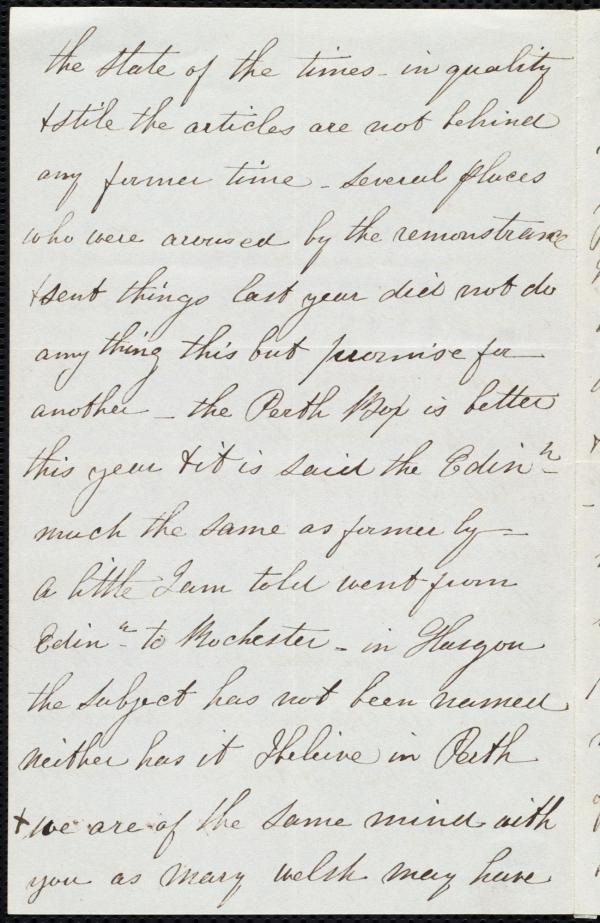 the state of the times - in quality
& stile the articles are not behind
any former time - several places
who were aroused by the remonstrance
& sent things last year did not do
any thing this but promise for
another - the Perth Box is better
this year & it is said the Edinh
much the same as former ly -
a little I am told went from
Edinh to Rochester - in Glasgow
the subject has not been named
neither has it I beleive in Perth
& we are of the same mind with
you as Mary Welsh may have